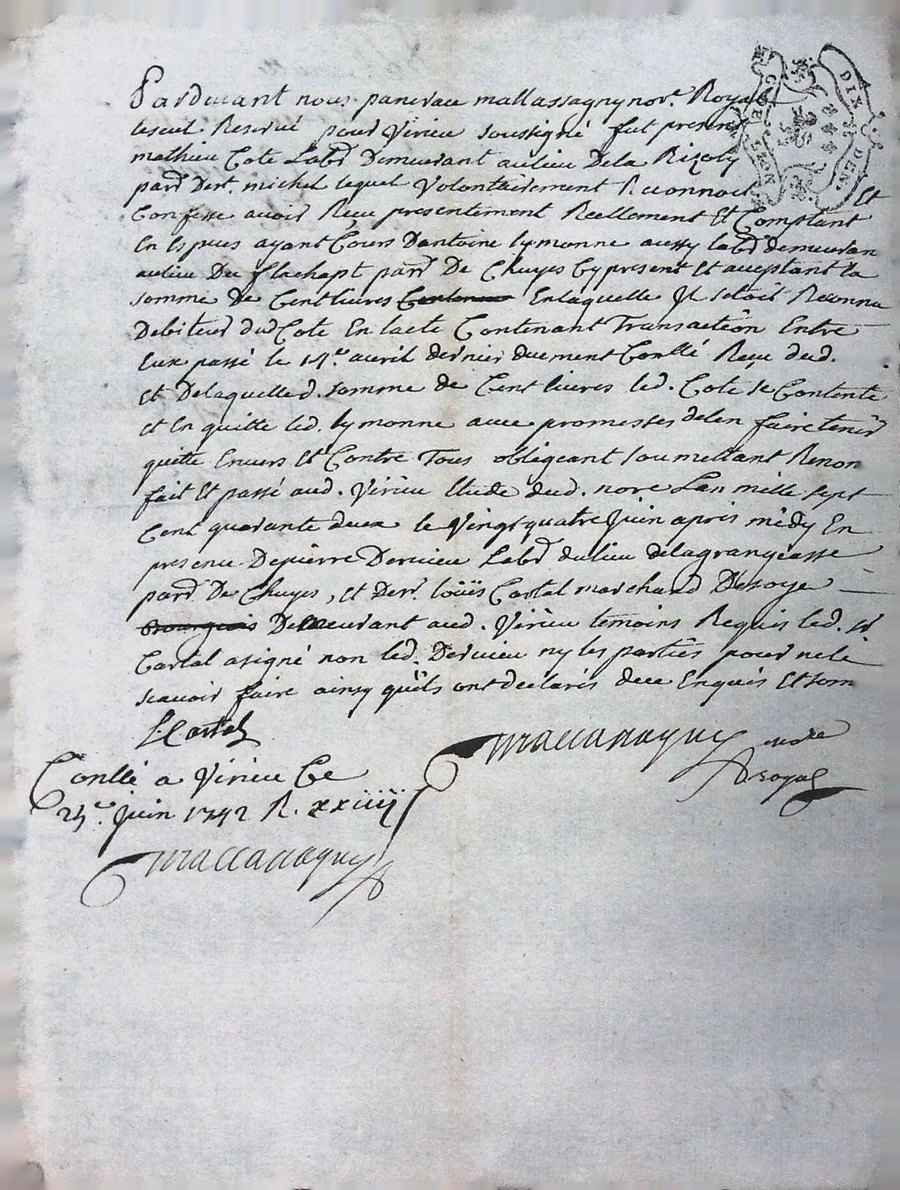 Pardevant nous pancrace mallassagny nore. Royal
le seul Reservé pour Virieu soussigné fut present
mathieu Cote Labr Demeurant au lieu De la Rizoly
parr De st. michel lequel Volontairement Reconnoit Et
Confesse avoir Reçu presentement Reellement Et Comptant
En Espices ayant Cours D'antoine lymonne aussy labr demeuran
au lieu Du flachapt parr De Chuyes Cy present Et acceptant la
somme De Cent livres En laquelle Il setoit Reconnu
Debiteur dud Cote En l'acte Contenant Transaction Entre
Eux passé le avril dernier duement Conllé Reçu dud.
et De laquelle d. somme de Cent livres led. Cote se Contente
et En quitte led. lymonne avec promesses de l'en faire tenir
quitte Envers Et Contre Tous obligeant soumettant Renon
fait Et passé aud. Virieu Etude dud. nore L'an mille sept
Cent quarante deux le Vingt quatre Juin apres midy En
presence De pierre Dervieu Labr du lieu de la grangeasse
parr De Chuyes, et de sr. loüis Cartal marchand De soye
Demeurant aud. Virieu temoins Requis led. sr
Cartal a signé non led. Dervieu ny les parties pour ne le
scavoir faire ainsy qu'ils ont declarés de ce Enquis Et som
L. Cartal
mallassagny nore
royal
Conllé a Virieu Ce
24e. Juin 1742 R. xxiiij s
mallassagny
DIX DEN.